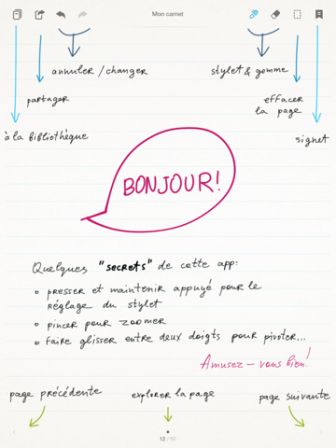 Mon carnet
annuler/changer
stylet & gomme
partager
effacer
la page
à la bibliothèque
signet
BONJOUR!
Quelques "secrets" de cette app:
presser et maintenir appuyé pour le
réglage du stylet
pincer pour zoomer
faire glisser entre deux doigts pour pivoter...
Amusez-vous bien!
page précédente
explorer la page
page suivante